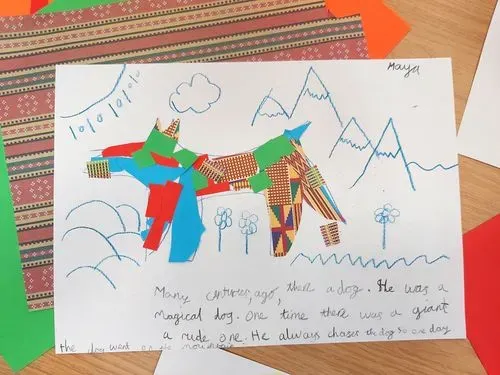 Maya
Many centuries, ago, there a dog. He was a
magical dog. One time there was a giant
a rude one. He always chases the dog so one day
the dog went on the mountain